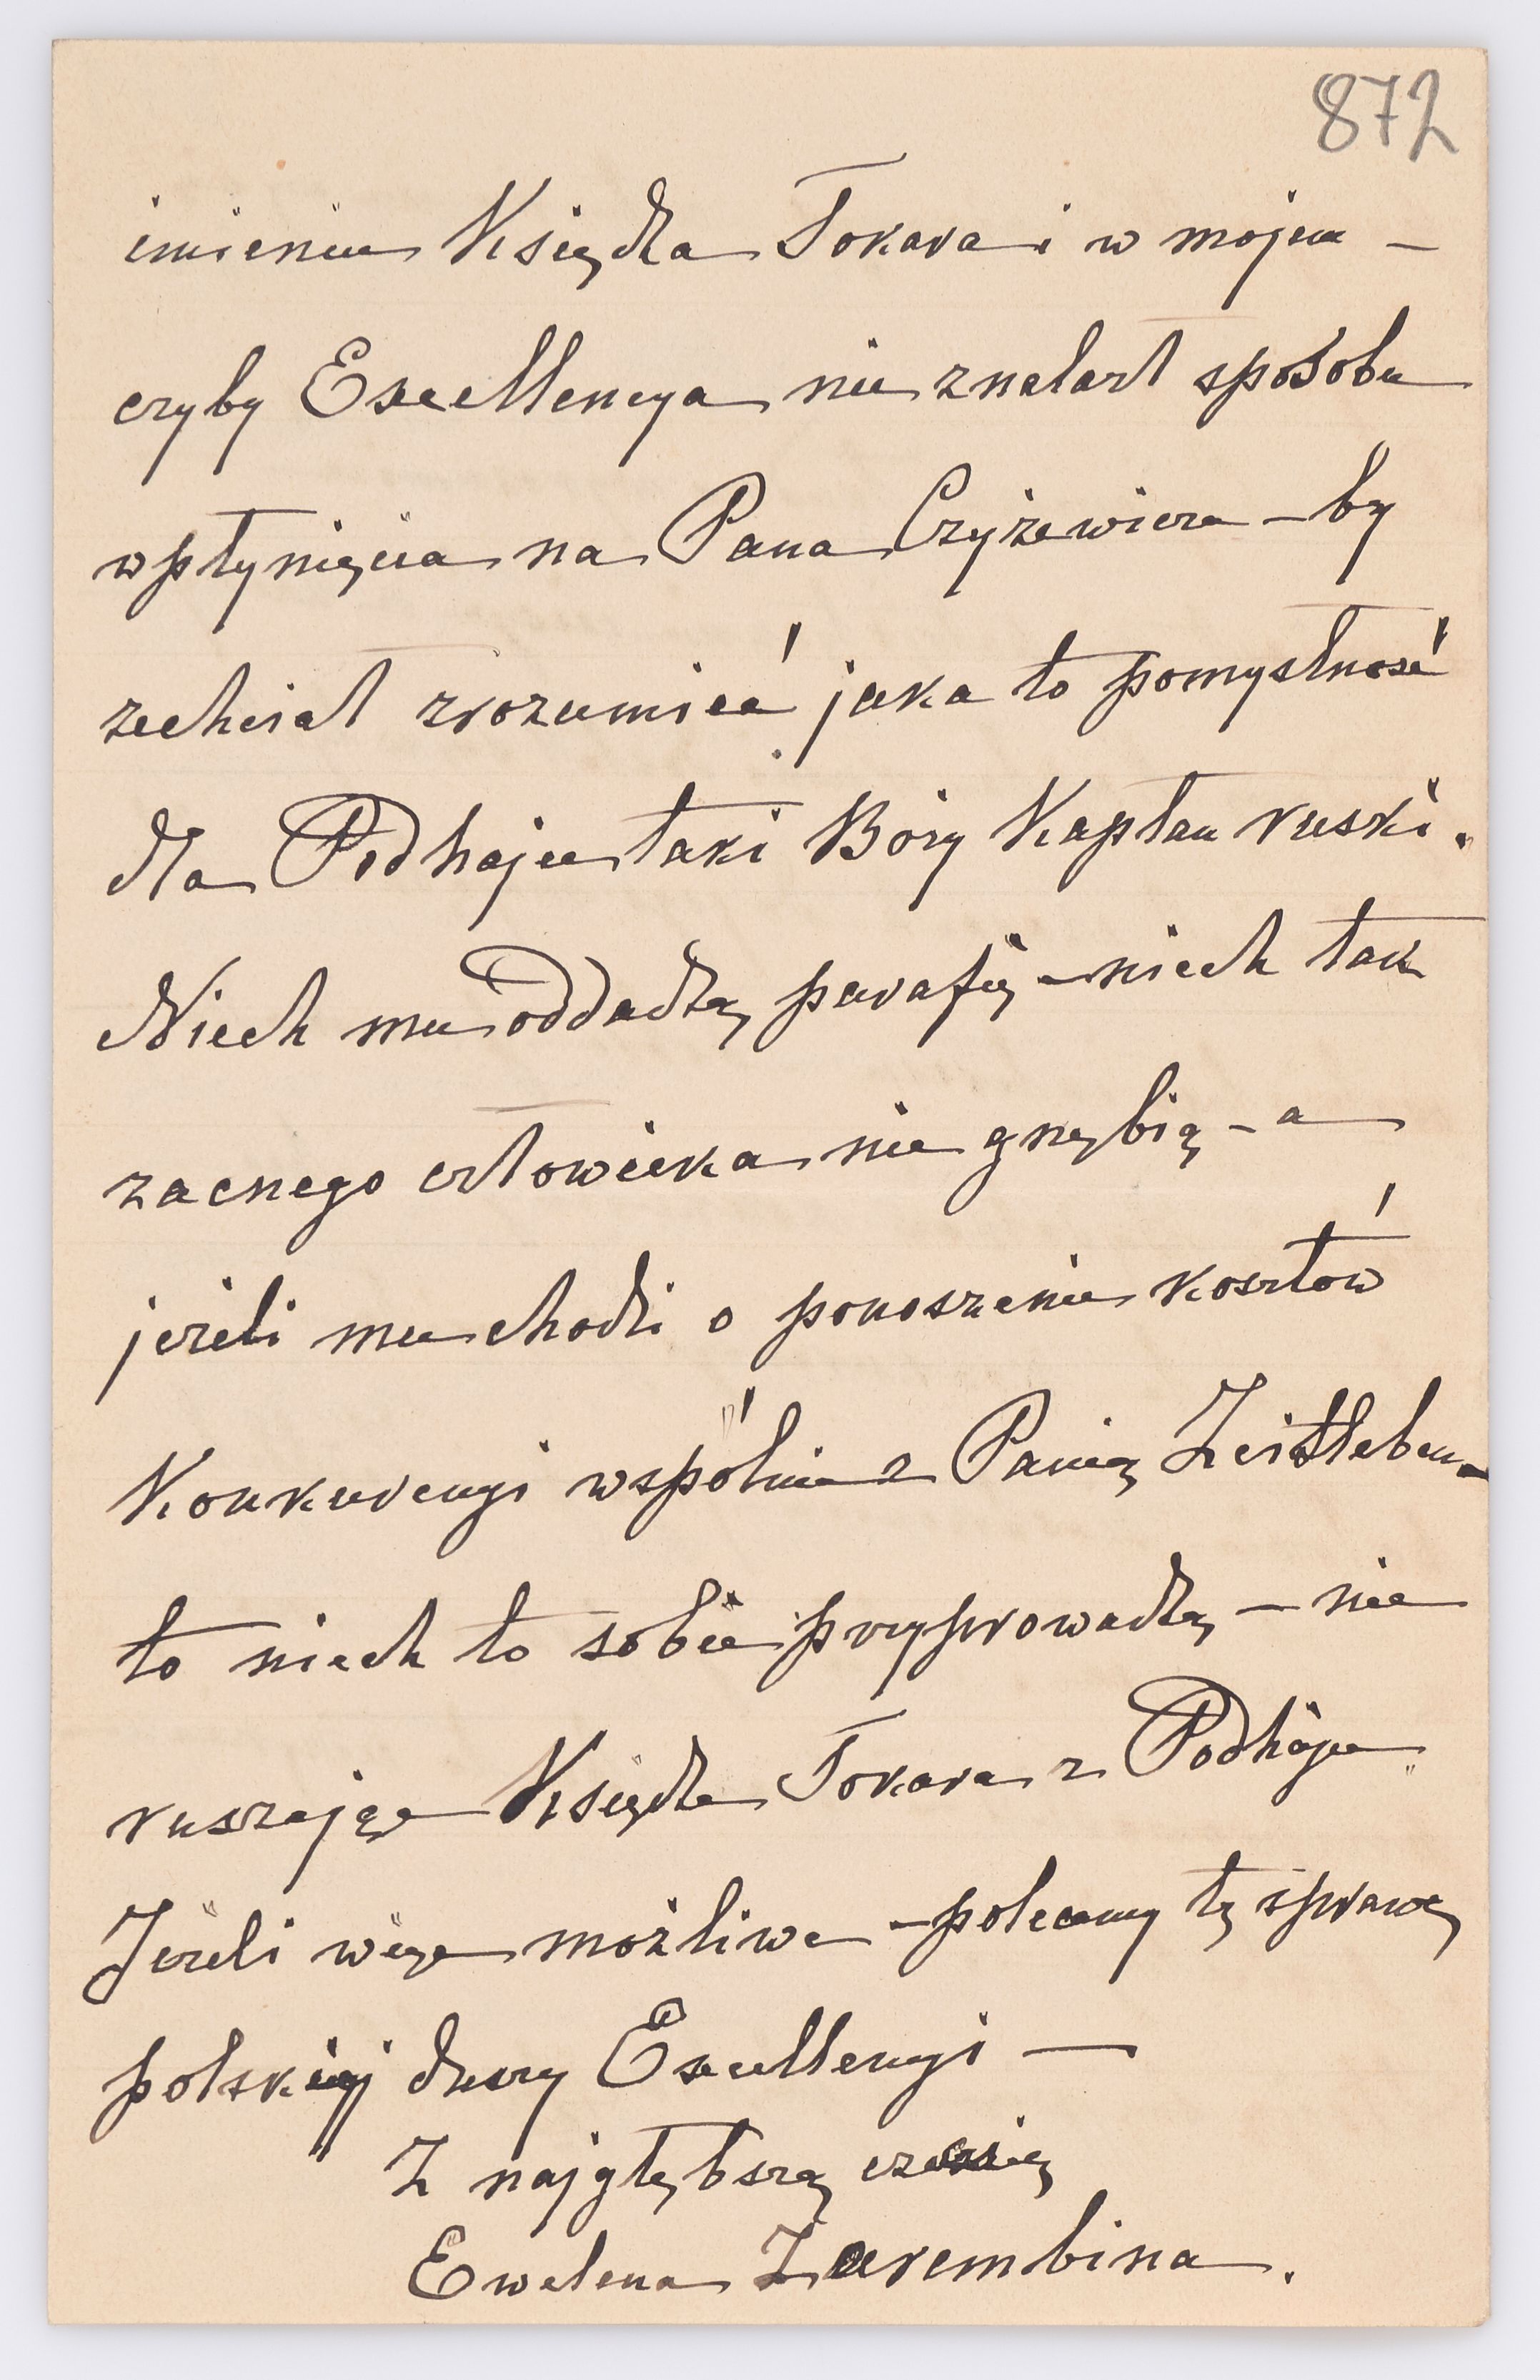 872
imieniu Księdza Tokara i w mojem —
czyby Excellencya nie znalazł sposobu
wpłynięcia na Pana Czyżewicza – by
zechciał zrozumieć jaka to pomyślność
dla Podhajec taki Boży Kapłan ruski.
Niech mu oddadzą parafię – niech tak
zacnego człowieka nie gnębią – a
jeżeli mu chodzi o ponoszenie kosztów
Konkurencyi wspólnie z Panią Zeitleben –
to niech to sobie przyprowadzą – nie
ruszając Księdza Tokara z Podhajec
Jeżeli więc możliwe – polecamy tę sprawę
polskiej duszy Excellencyi —
Z najgłębszą czcią
Ewelena Zarembina.